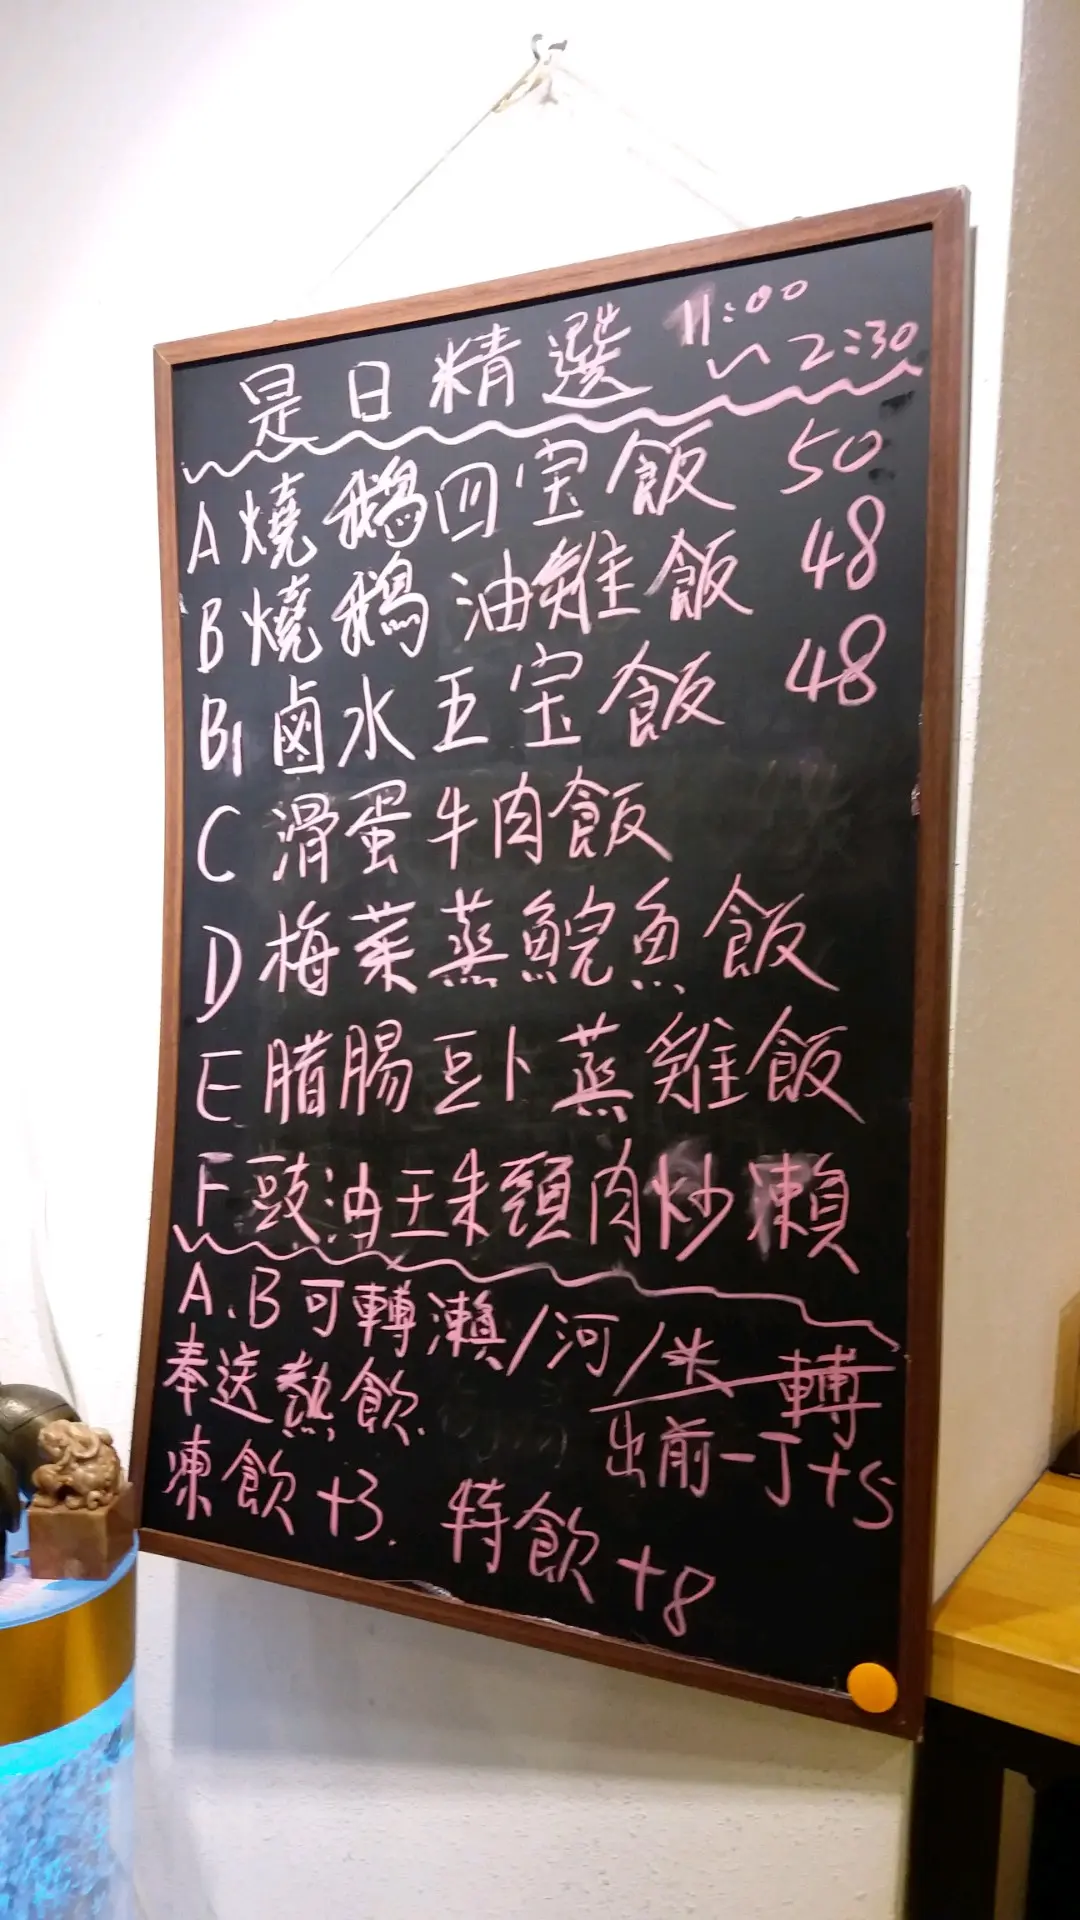 是日精選 11:00 ~ 2:30
A 燒鵝四宝飯 50
B 燒鵝油雞飯 48
B1 鹵水五宝飯 48
C 滑蛋牛肉飯
D 梅菜蒸鯇魚飯
E 腊腸豆卜蒸雞飯
F 豉油王朱頭肉炒瀨
A.B可轉瀨/河/米 轉
出前一丁+5
奉送熱飲.
凍飲+3. 特飲+8